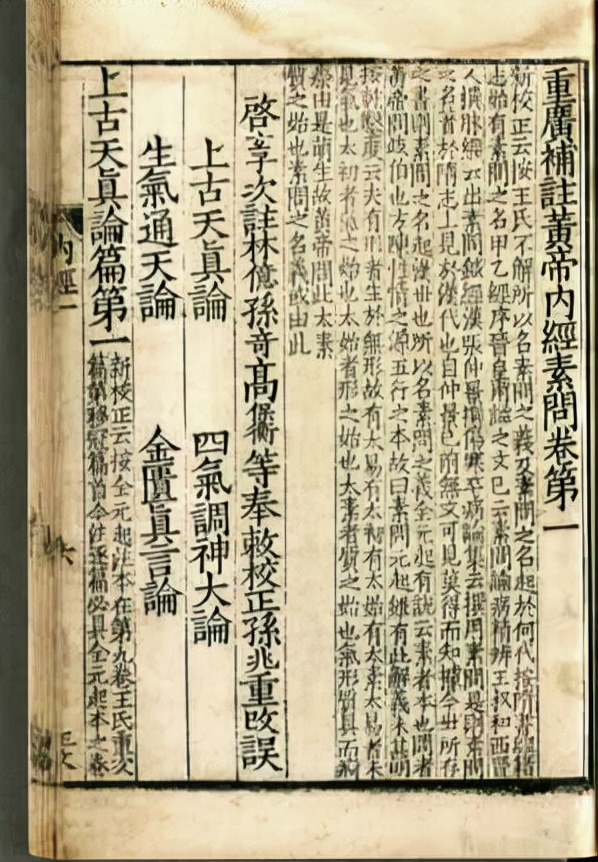 重廣補註黃帝內經素問卷第一
新校正云按王氏不解所以名素問之義及素問之名起於何代按隋書經籍
志始有素問之名甲乙經序晉皇甫謐之文已云素問論病精辨王叔和西晉
人撰脉經云出素問鍼經漢張仲景撰傷寒卒病論集云撰用素問是則素問
之名著於隋志上見於漢代也自仲景已前無文可見莫得而知據今世所存
之書則素問之名起漢世也所以名素問之義全元起有說云素者本也問者
黃帝問歧伯也方陳性情之源五行之本故曰素問元起雖有此解義未甚明
按乾鑿度云夫有形者生於無形故有太易有太初有太始有太素太易者未
見氣也太初者氣之始也太始者形之始也太素者質之始也氣形質具而痾
瘵由是萌生故黃帝問此太素
質之始也素問之名義或由此
啓玄子次註林億孫奇高保衡等奉敕校正孫兆重改誤
上古天真論 四氣調神大論
生氣通天論 金匱真言論
上古天真論篇第一
新校正云按全元起注本在第九卷王氏重次
篇第移冠篇首今注逐篇必具全元起本之卷
内經一